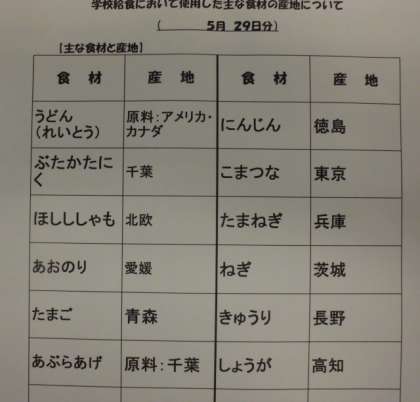 学校給食において使用した主な食材の産地について
( 5月 29日分)
[主な食材と産地]
食 材 産 地 食 材 産 地
うどん
(れいとう) 原料:アメリカ・
カナダ にんじん 徳島
ぶたかたに
く 千葉 こまつな 東京
ほしししゃも 北欧 たまねぎ 兵庫
あおのり 愛媛 ねぎ 茨城
たまご 青森 きゅうり 長野
あぶらあげ 原料:千葉 しょうが 高知